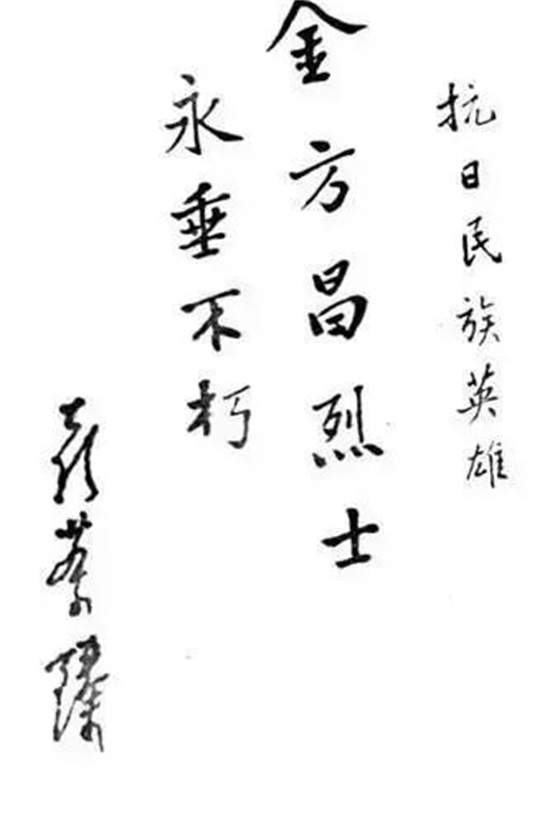 抗日民族英雄
金方昌烈士
永垂不朽
聂荣臻